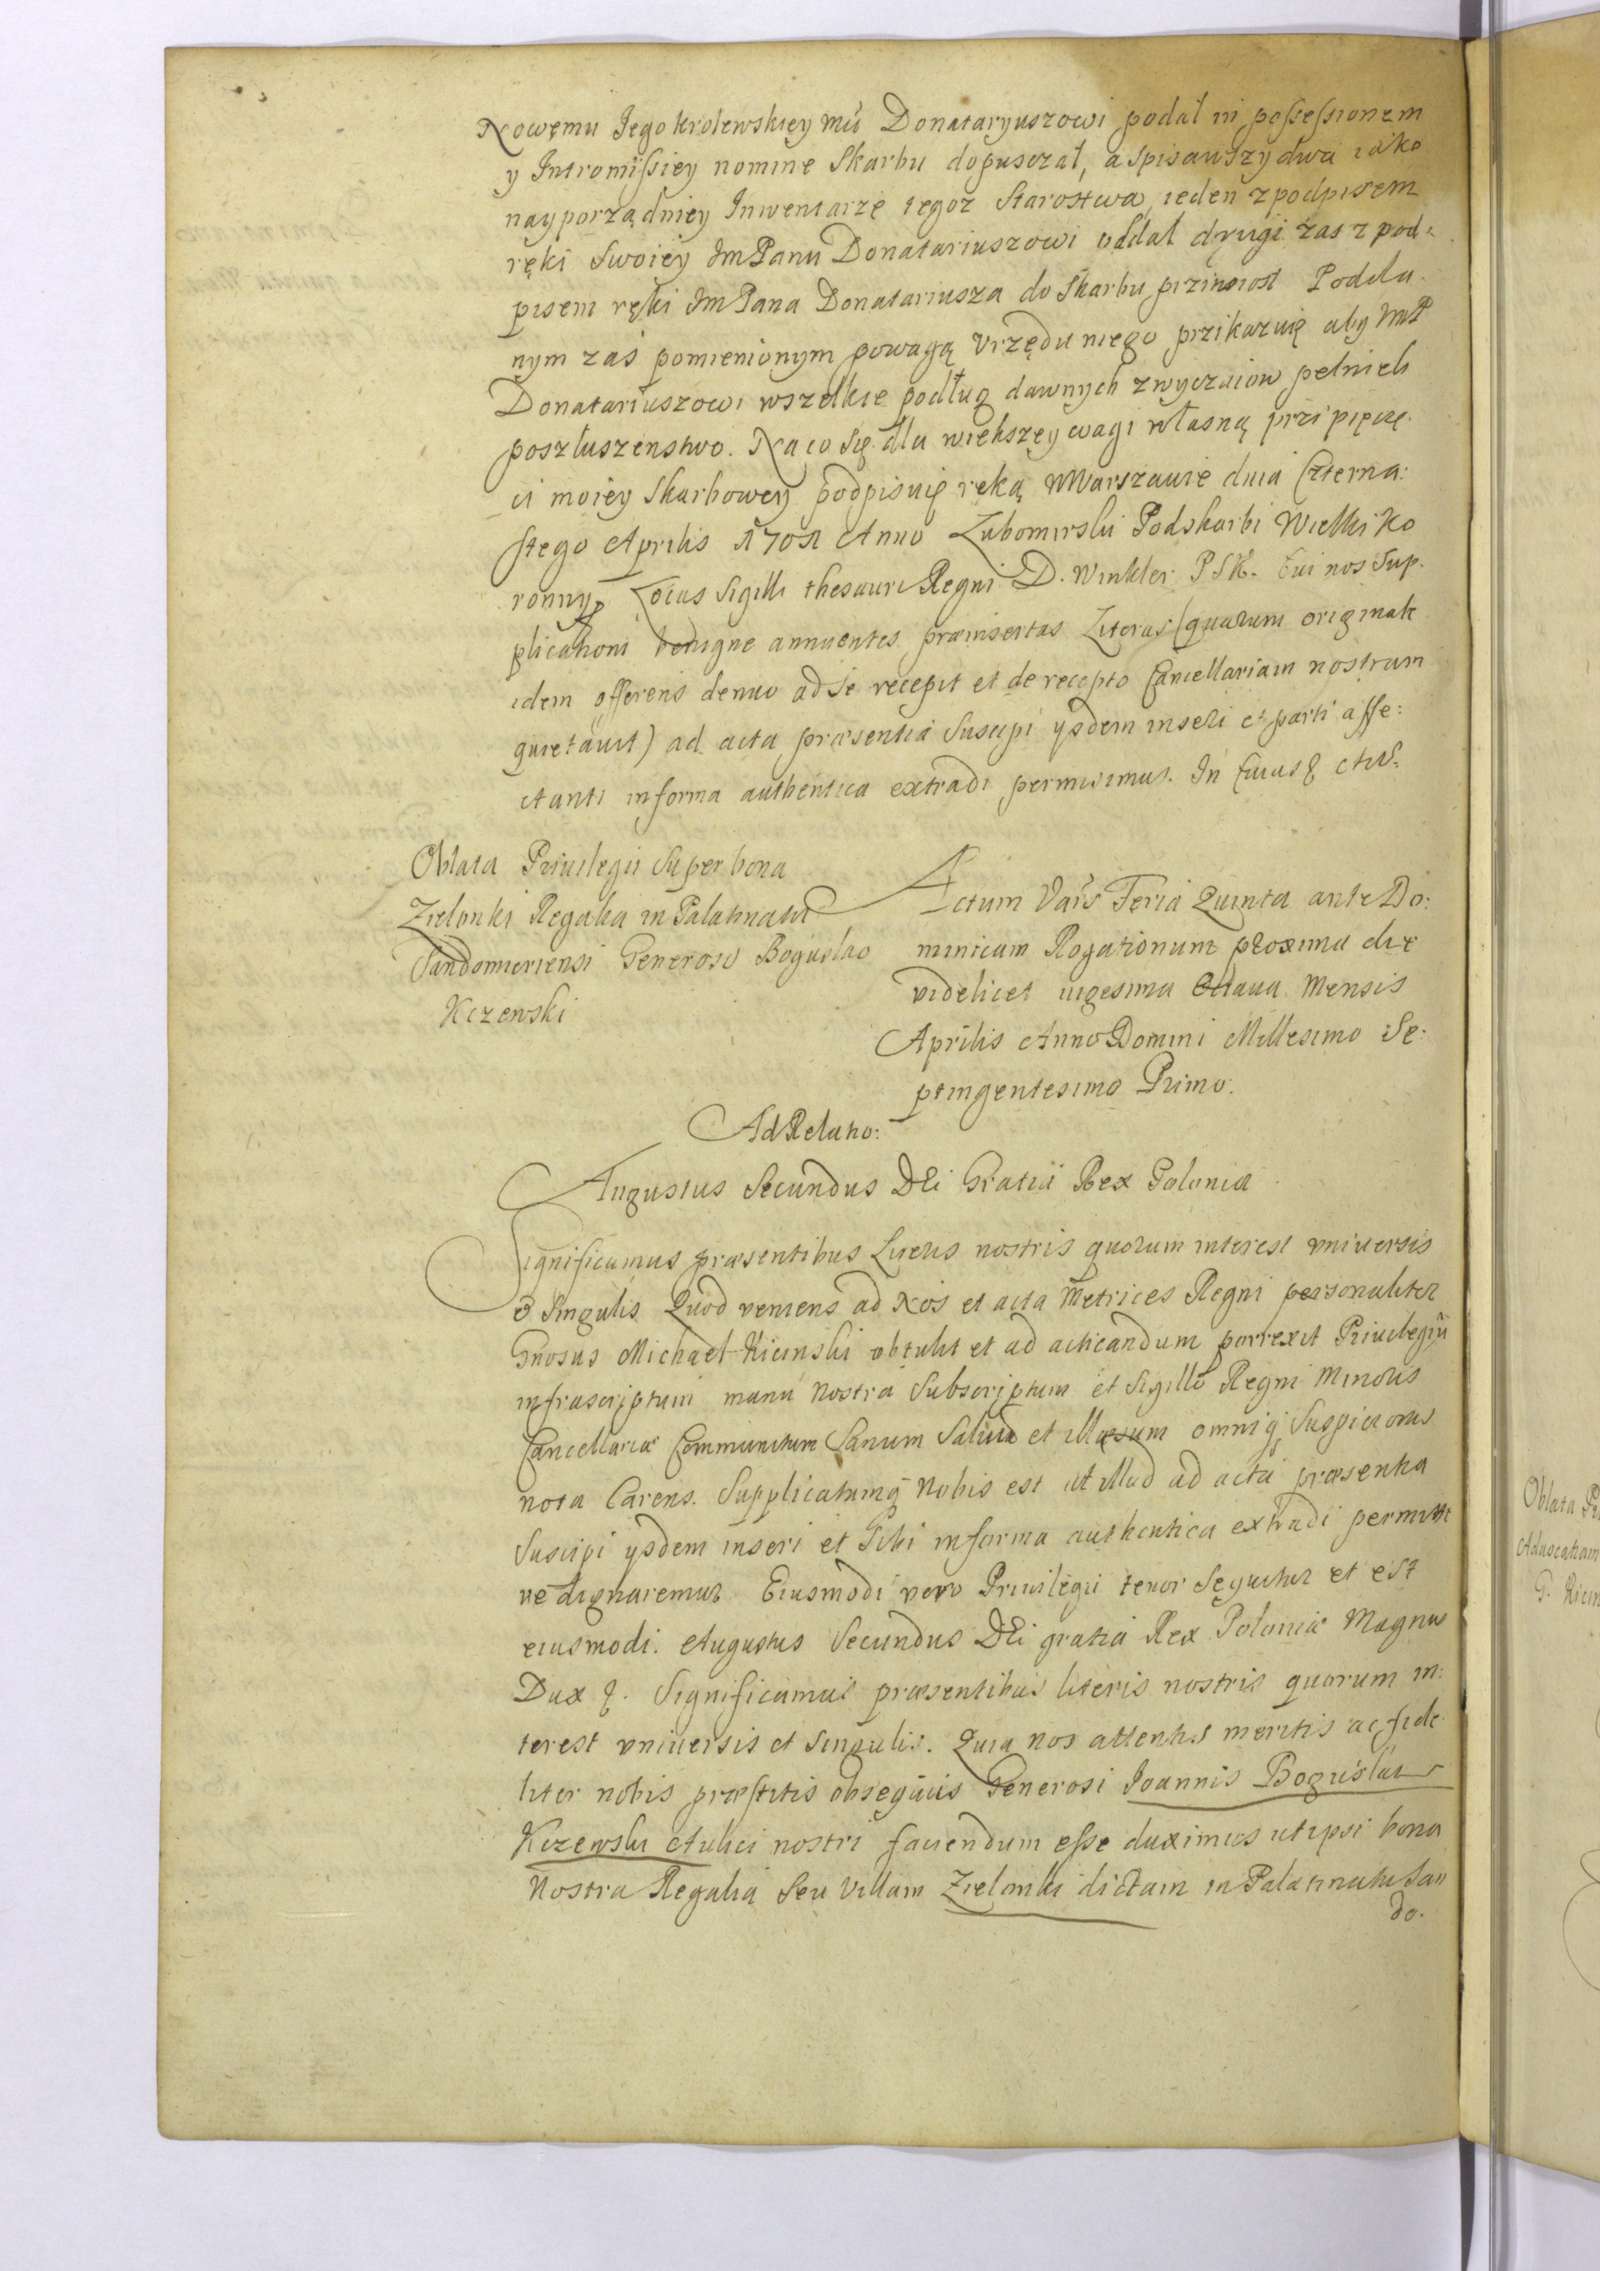 Nowemu Jego krolewskiey mći Donataryuszowi podał in possessionem
y Intromissiey nomine Skarbu dopuszczał, a spisawszy dwa iako
nayporządniey Inwentarze tegoz Starostwa, ieden z podpisem
ręki swoiey Jm Panu Donatariuszowi oddał drugi zas z pod=
pisem ręki Jm Pana Donatariusza do skarbu przinosł Podda=
nym zaś pomienionym powagą Vrzędu mego przikazuię aby Im P
Donatariuszowi wszelkie podług dawnych zwyczaiow pełnieli
poszłuszenstwo. Na co się dla większey wagi własną przi pięczę=
ci moiey Skarbowey podpisuię ręką w Warszawie dnia Czterna:
stego Aprilis 1701 Anno Lubomirski Podskarbi Wielki Ko
ronny Locus Sigilli thesauri Regni D. Winkler P S K. Cui nos Sup=
plicationi benigne annuentes præinsertas Literas (quarum originale
idem offerens denuo ad se recepit et de recepto Cancellariam nostram
quietauit) ad acta præsentia Suscipi ysdem inseri et parti affe:
ctanti in forma authentica extradi permisimus. In Cuius &c Act:
Oblata Priuilegii Super bona
Zielonki Regalia in Palatinatu
Sandomiriensi Generoso Boguslao
Kczewski
Actum Vars Feria Quinta ante Do:
minicam Rogationum proxima die
videlicet uigesima Octaua Mensis
Aprilis Anno Domini Millesimo Se:
ptingentesimo Primo.
Ad Relatio:
Augustus Secundus DEi Gratia Rex Poloniæ
Significamus præsentibus Literis nostris quorum interest vniuersis
& Singulis Quod veniens ad Nos et acta Metrices Regni personaliter
Gnosus Michael Kicinski obtulit et ad acticandum porrexit Priuilegiũ
infrascriptum manu Nostra Subscriptum et Sigillo Regni Minoris
Cancellariæ Communitum Sanum Saluum et illæsum omniq Suspicionis
nota Carens. Supplicatumq Nobis est ut illud ad acta præsentia
Suscipi ysdem inseri et Pti in forma authentica extradi permitte
re dignaremur Eiusmodi vero Priuilegii tenor Sequitur et est
eiusmodi. Augustus Secundus DEi gratia Rex Poloniæ Magnus
Dux &. Significamus præsentibus literis nostris quorum in:
terest vniuersis et Singulis. Quia nos attentis meritis ac fide
liter nobis præstitis obsequiis Generosi Joannis Boguslai
Kczewski Aulici nostri faciendum esse duximus ut ipsi bona
Nostra Regalia Seu Villam Zielonki dictam in Palatinatu San
do.
Oblata Pri
Aduocatiam
G. Kicin